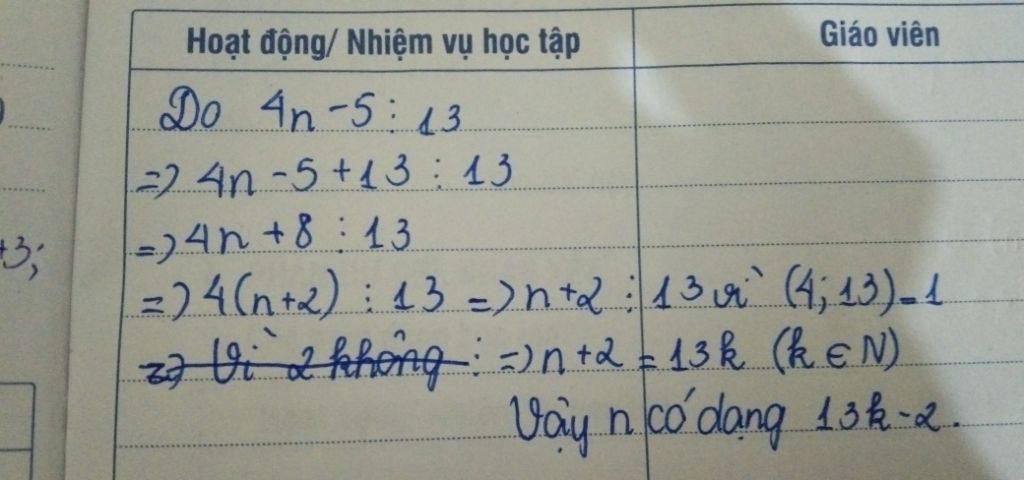 Hoạt động/ Nhiệm vụ học tập
Giáo viên
Do 4n - 5 ⋮ 13
=> 4n - 5 + 13 ⋮ 13
=> 4n + 8 ⋮ 13
+3;
=> 4(n+2) ⋮ 13 => n+2 ⋮ 13 vì (4; 13) = 1
=> Vì 2 không ⋮ => n+2 = 13k (k ∈ N)
Vậy n có dạng 13k - 2.